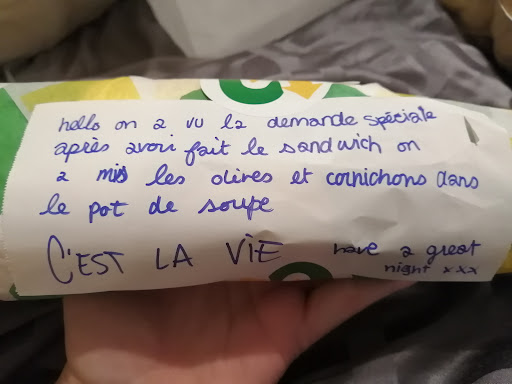 hello on a vu la demande spéciale
après avoir fait le sandwich on
a mis les olives et cornichons dans
le pot de soupe
C'EST LA VIE have a great
night xxx